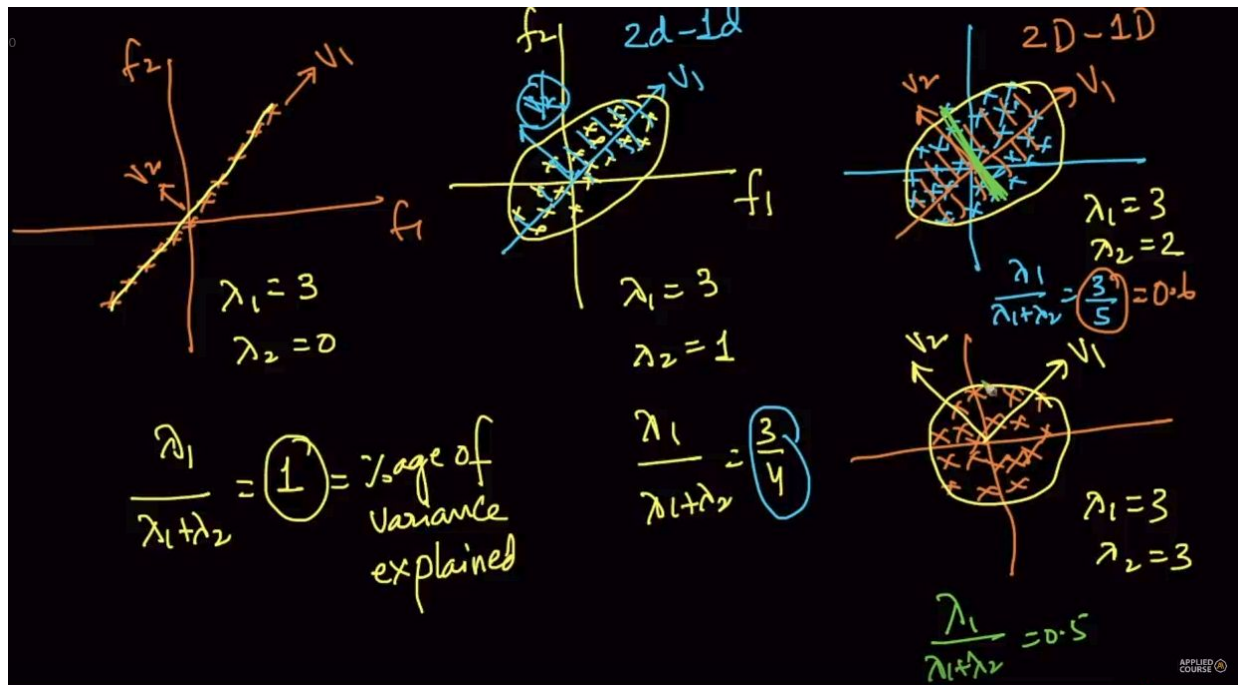 0
f₂
V₁
V₂
f₁
λ₁ = 3
λ₂ = 0
λ₁
λ₁+λ₂
= 1 = %age of
variance
explained
f₂
2d-1d
V₁
f₁
λ₁ = 3
λ₂ = 1
λ₁
λ₁+λ₂
= 3
4
2D-1D
V₂
V₁
λ₁ = 3
λ₂ = 2
λ₁
λ₁+λ₂
= 3
5
= 0.6
V₂
V₁
λ₁ = 3
λ₂ = 3
λ₁
λ₁+λ₂
= 0.5
APPLIED
COURSE